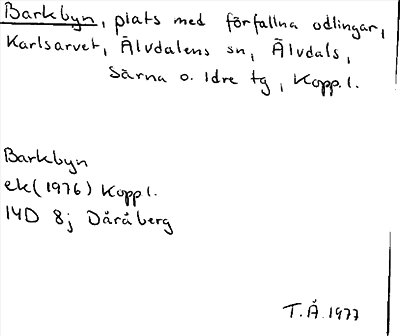 Barkbyn, plats med förfallna odlingar,
Karlsarvet, Älvdalens sn, Älvdals,
Särna o. Idre tg, Kopp.l.
Barkbyn
ek (1976) Kopp l.
14D 8j Dåråberg
T.Å. 1977